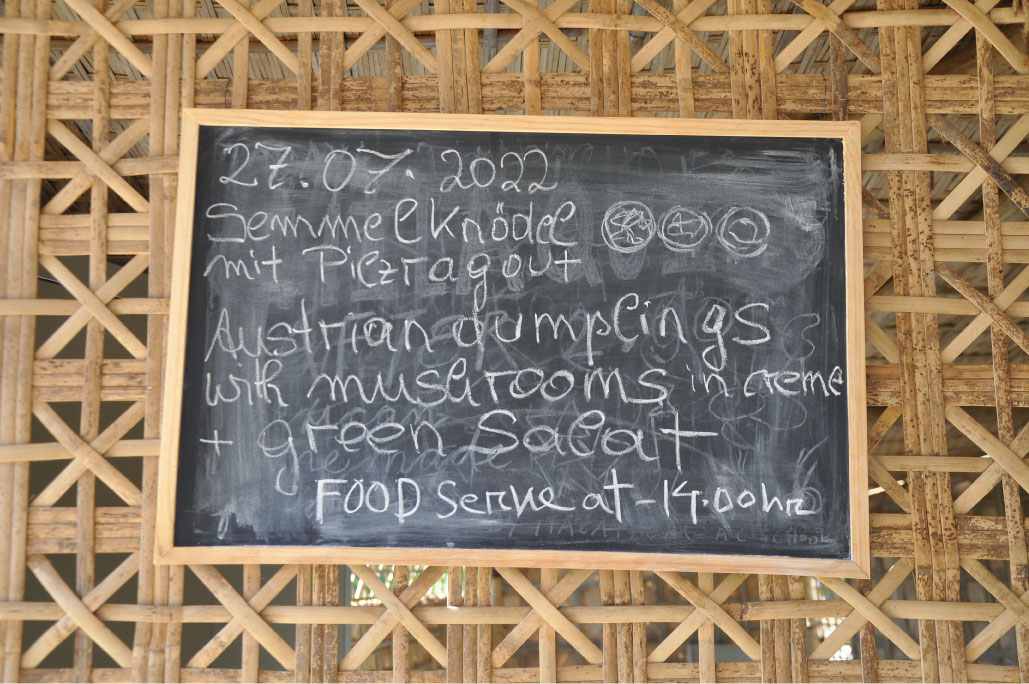 27.07.2022
Semmelknödel
mit Pilzragout
Austrian dumplings
with mushrooms in creme
+ green Salat
FOOD Serve at - 14.00 hr